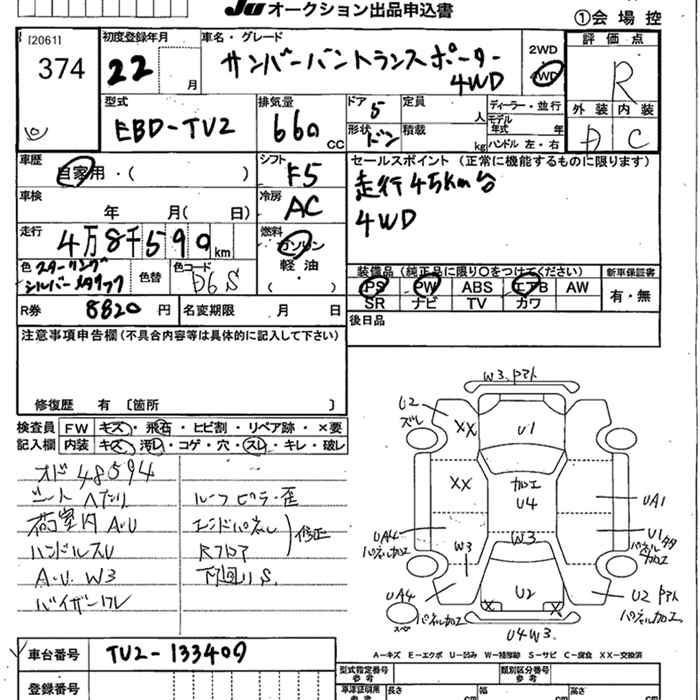 JU オークション出品申込書
①会場控
[2061]
374
初度登録年月
22
月
車名・グレード
サンバーバントランスポーター
4WD
2WD
4WD
評価点
R
型式
EBD-TV2
排気量
660
CC
ドア
5
定員
人
ディーラー・並行
モデル
年式
年
形状
バン
積載
kg
ハンドル 左・右
外装
内装
A
C
車歴
自家用・( )
シフト
F5
セールスポイント(正常に機能するものに限ります)
走行4万Km台
4WD
車検
年 月( 日)
冷房
AC
走行
4万8千590
km
燃料
ガソリン
軽油
( ・ )
色
スターリング
シルバーメタリック
色替
色コード
D6S
装備品(純正品に限り○をつけてください)
新車保証書
PS
PW
ABS
エアB
AW
有・無
SR
ナビ
TV
カワ
R券
8820
円
名変期限
月
日
後日品
注意事項申告欄(不具合内容等は具体的に記入して下さい)
修復歴 有 〔箇所 〕
検査員
記入欄
FW
キズ・飛石・ヒビ割・リペア跡・×要
内装
キズ・汚レ・コゲ・穴・スレ・キレ・破レ
オド48594
シートヘタリ
荷室内 A・U
ハンドルスリ
A・U W3
バイザーワレ
ルーフピラー歪
エンドパネル
Rフロア
修正
下回りS
W3.アト
U2
ズレ
XX
U1
XX
加工
U4
UA1
UA4
パネル加工
W3
W3
U1
パネル加工
UA4
パネル加工
X
U2
X
U2
パネル加工
スペア
U4W3.
A=キズ E=エクボ U=凹み W=補修跡 S=サビ C=腐食 XX=交換済
車台番号
TV2-133409
登録番号
型式指定番号
参考
類別区分番号
参考
車庫証明用
参考
長さ
cm
幅
cm
高さ
cm